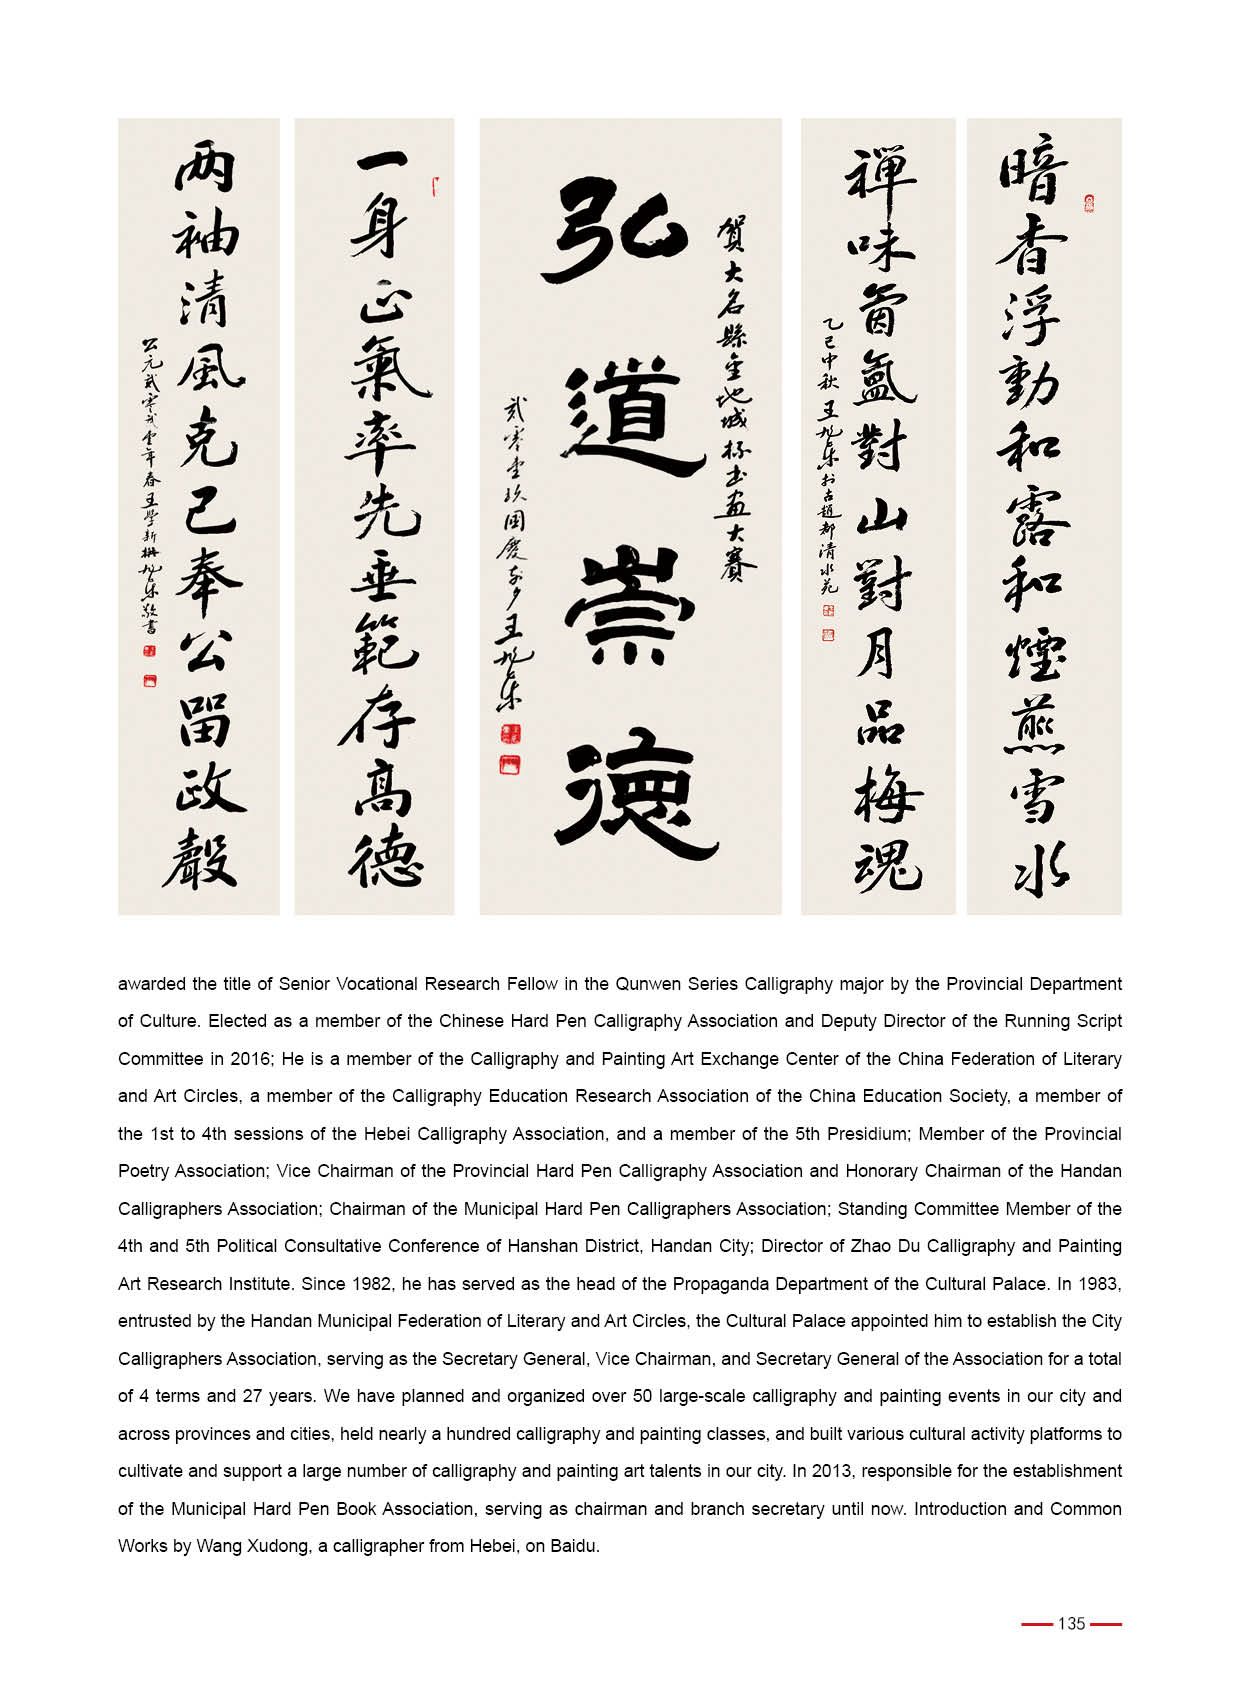 暗香浮動和露和煙蒸雪水
禪味氤氳對山對月品梅魂
乙巳中秋王旭东於古趙都清水苑
賀大名縣金地城杯书画大賽
弘道崇德
貳零壹玖国慶前夕王旭东
一身正氣率先垂範存高德
两袖清風克己奉公留政聲
公元貳零貳壹年春王學新撰旭东敬書
awarded the title of Senior Vocational Research Fellow in the Qunwen Series Calligraphy major by the Provincial Department
of Culture. Elected as a member of the Chinese Hard Pen Calligraphy Association and Deputy Director of the Running Script
Committee in 2016; He is a member of the Calligraphy and Painting Art Exchange Center of the China Federation of Literary
and Art Circles, a member of the Calligraphy Education Research Association of the China Education Society, a member of
the 1st to 4th sessions of the Hebei Calligraphy Association, and a member of the 5th Presidium; Member of the Provincial
Poetry Association; Vice Chairman of the Provincial Hard Pen Calligraphy Association and Honorary Chairman of the Handan
Calligraphers Association; Chairman of the Municipal Hard Pen Calligraphers Association; Standing Committee Member of the
4th and 5th Political Consultative Conference of Hanshan District, Handan City; Director of Zhao Du Calligraphy and Painting
Art Research Institute. Since 1982, he has served as the head of the Propaganda Department of the Cultural Palace. In 1983,
entrusted by the Handan Municipal Federation of Literary and Art Circles, the Cultural Palace appointed him to establish the City
Calligraphers Association, serving as the Secretary General, Vice Chairman, and Secretary General of the Association for a total
of 4 terms and 27 years. We have planned and organized over 50 large-scale calligraphy and painting events in our city and
across provinces and cities, held nearly a hundred calligraphy and painting classes, and built various cultural activity platforms to
cultivate and support a large number of calligraphy and painting art talents in our city. In 2013, responsible for the establishment
of the Municipal Hard Pen Book Association, serving as chairman and branch secretary until now. Introduction and Common
Works by Wang Xudong, a calligrapher from Hebei, on Baidu.
135